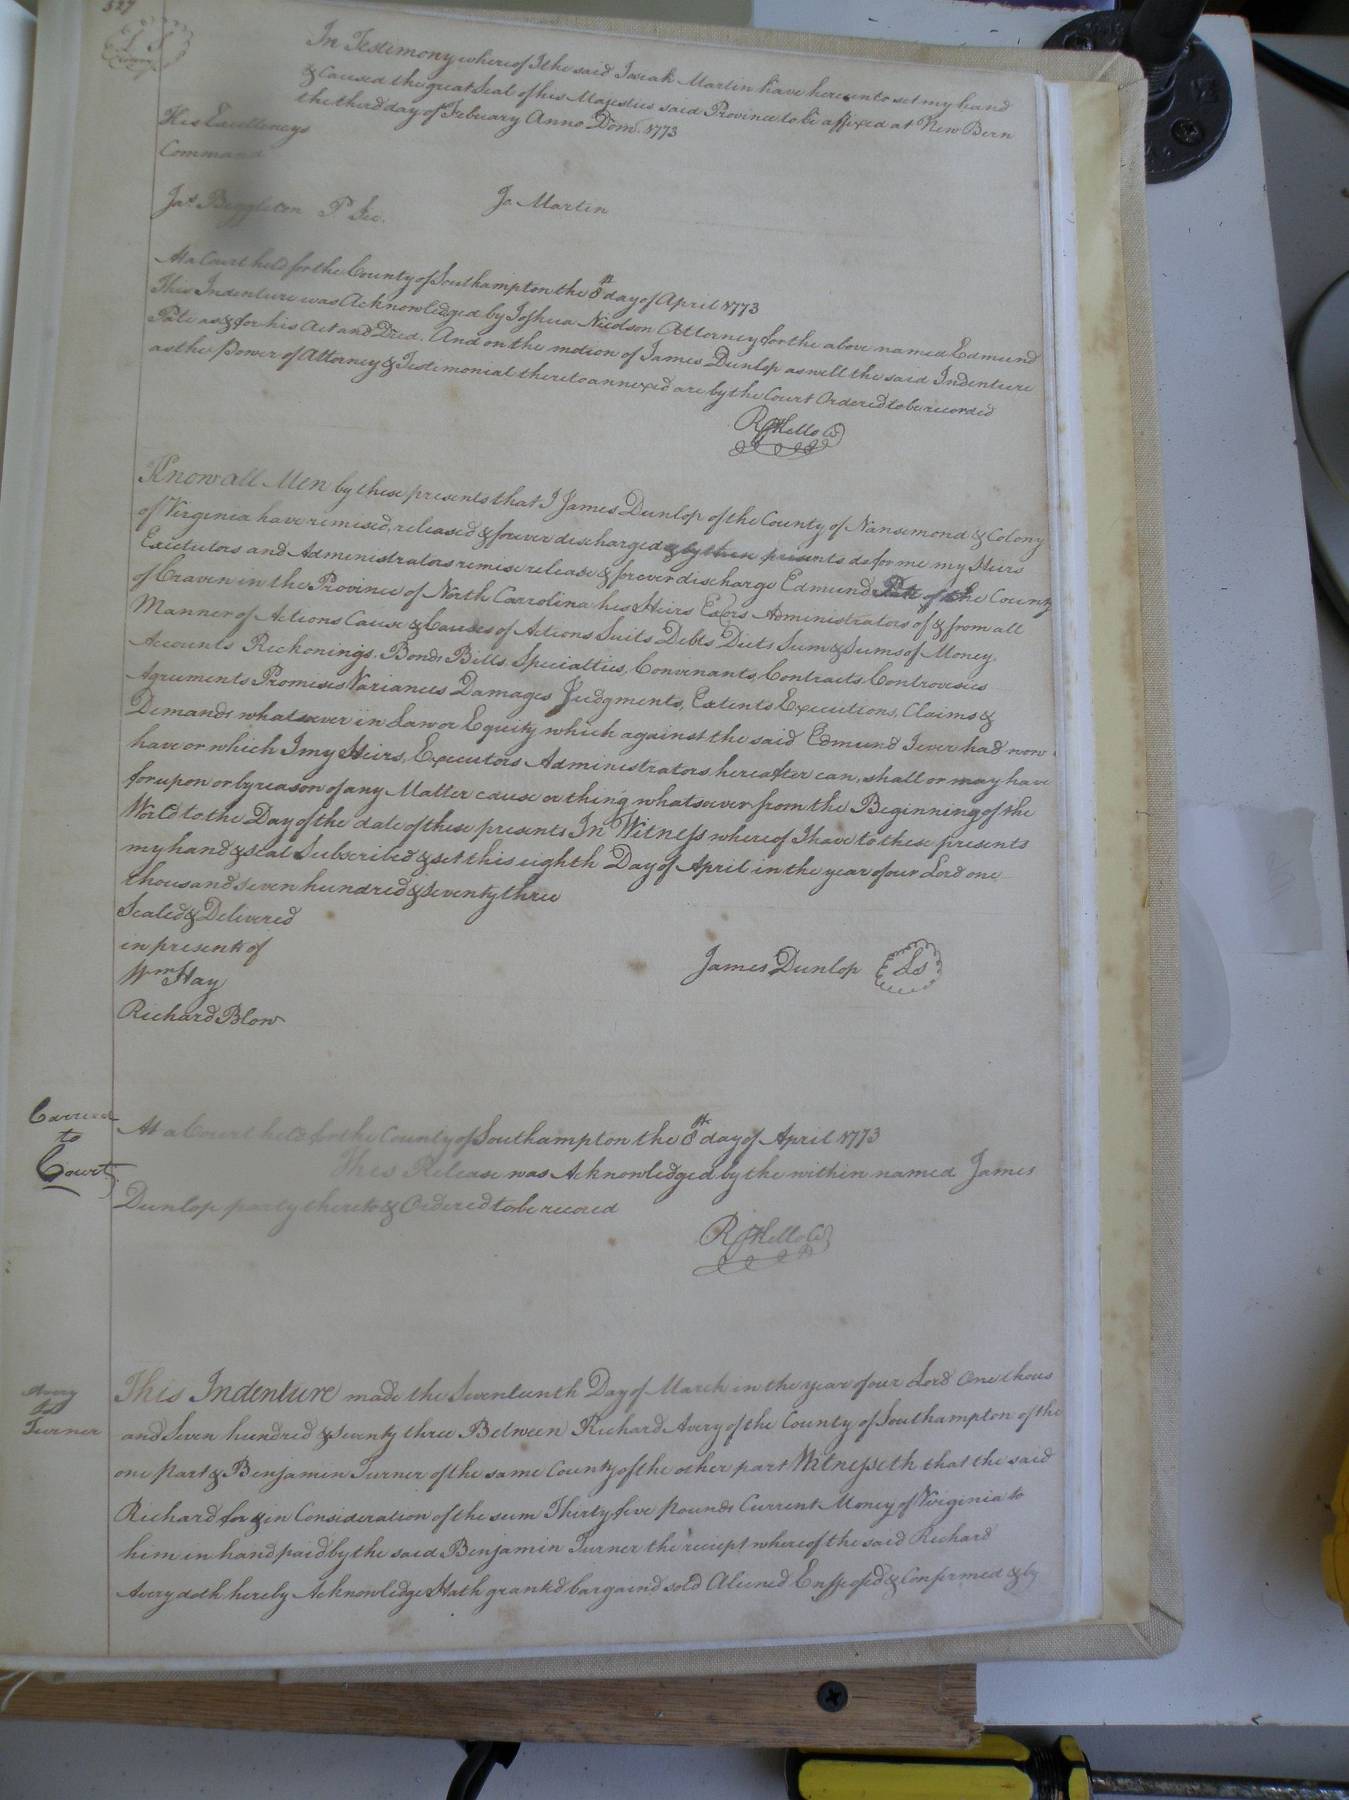 527
L S
In Testimony whereof I the said Josiah Martin have hereunto set my hand
& Caused the great Seal of his Majesties said Province to be affixed at New Bern
the third day of Febuary Anno Dom. 1773
His Excellencys
Command
Jas. Biggleston P Sec.
Jo Martin
At a Court held for the County of Southampton the 8th day of April 1773
This Indenture was Acknowledged by Joshua Nicolson Attorney for the above named Edmund
Pate as & for his Act and Deed. And on the motion of James Dunlop as well the said Indenture
as the Power of Attorney & Testimonial thereto annexed are by the Court Ordered to be recorded
R Kello Co
Know all Men by these presents that I James Dunlop of the County of Nansemond & Colony
of Virginia have remised, released & forever discharged & by these presents do for me my Heirs
Executors and Administrators remise release & forever discharge Edmund Pate of the County
of Craven in the Province of North Carrolina his Heirs Exors Administrators of & from all
Manner of Actions Cause & Causes of Actions Suits Debts Duts Sum & Sums of Money.
Accounts Reckonings. Bonds Bills Specialties, Convenants, Contracts Controvesies
Agruments Promises Variances Damages Judgments, Extents Executions, Claims &
Demands whatsoever in Law or Equity which against the said Edmund I ever had now
have or which I my Heirs, Executors Administrators hereafter can, shall or may have
for upon or by reason of any Matter cause or thing whatsoever from the Beginning of the
World to the Day of the date of these presents In Witness whereof I have to these presents
my hand & seal Subscribed & set this eighth Day of April in the year of our Lord one
thousand seven hundred & seventy three
Sealed & Delivered
in presents of
Wm Hay
Richard Blow
James Dunlop Ls
Carried
to
Court
At a Court held for the County of Southampton the 8th day of April 1773
This Release was Acknowledged by the within named James
Dunlop party thereto & Ordered to be recored
R Kello Co
Avery
To
Turner
This Indenture made the Seventeenth Day of March in the year of our Lord One thous
and Seven hundred & seventy three Between Richard Avery of the County of Southampton of the
one Part & Benjamin Turner of the same County of the other part Witnesseth that the said
Richard for & in Consideration of the sum Thirty five Pounds Current Money of Virginia to
him in hand paid by the said Benjamin Turner the reciept whereof the said Richard
Avery doth hereby Acknowledge Hath granted bargaind sold Aliened Enffeofed & Confirmed & by